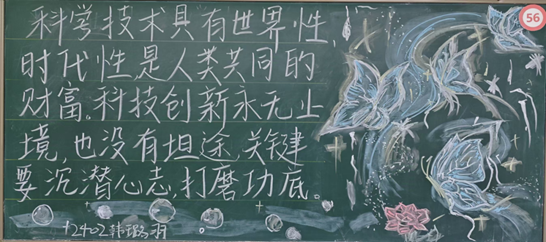 科学技术具有世界性,
时代性是人类共同的
财富。科技创新永无止
境,也没有坦途,关键
要沉潜心志,打磨功底。
2402韩
56